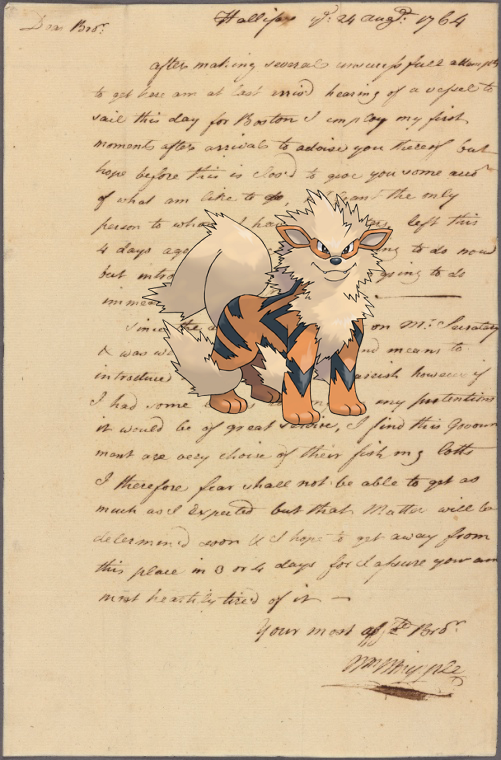 Hallifax yᵉ 24 augᵗ. 1764
Dear Broʳ.
after making several unsuccessfull attempts
to get here am at last arriv'd hearing of a vessel to
sail this day for Boston I employ my first
moments after arrival to advise you thereof but
hope before this is clos'd to give you some acctˢ
of what am like to do, the only
person to whom I ha left this
4 days ago ng to do now
but intro going to do
immed
Since the a on Mʳ. Secretary
& was w nd means to
introduce however if
I had some my pretentions
it would be of great service, I find this Govern
ment are very choice of their fish ing lotts
I therefore fear shall not be able to get as
much as I Expected but that Matter will be
determin'd soon & I hope to get away from
this place in 3 or 4 days for I assure you am
most heartily tired of it —
Your most affᵗᵉ Broʳ.
Wᵐ Whipple